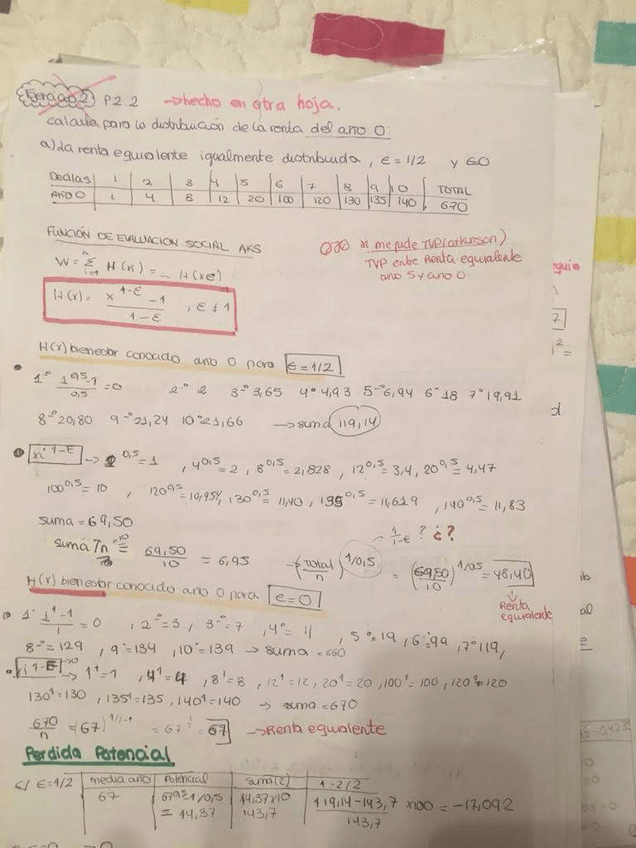 Ejercicio 2 P2.2 → hecho en otra hoja.
calcula para la distribución de la renta del año 0:
a) La renta equivalente igualmente distribuida, e = 1/2 y e=0
Decilas | 1 | 2 | 3 | 4 | 5 | 6 | 7 | 8 | 9 | 10 | TOTAL
AÑO 0 | 1 | 4 | 8 | 12 | 20 | 100 | 120 | 130 | 135 | 140 | 670
FUNCIÓN DE EVALUACION SOCIAL AKS
OJO si me pide TVP(atkinson)
TVP entre Renta equivalente
año 5 y año 0
W = Σ H(x) = H(xe)
H(x) = x^1-ε -1 / 1-ε , ε ≠ 1
H(x) bienestar conocido año 0 para e = 1/2
1º 1^0,5-1 / 0,5 = 0 2º 2 3º 3,65 4º 4,93 5º 6,94 6º 18 7º 19,91
8º 20,80 9º 21,24 10º 21,66 → suma 119,14
xi^1-ε → 1^0,5 = 1 , 4^0,5 = 2 , 8^0,5 = 2,828 , 12^0,5 = 3,4 , 20^0,5 = 4,47
100^0,5 = 10 , 120^0,5 = 10,954, 130^0,5 = 11,40 , 135^0,5 = 11,619 , 140^0,5 = 11,83
suma = 69,50
1/1-e ? ¿?
69,50/10 = 6,95 → (total/n)^1/0,5 = (69,50/10)^1/0,5 = 48,40
Renta
equivalente
H(x) bienestar conocido año 0 para e=0
1º 1^1-1/1 = 0 , 2º = 3 , 3º = 7 , 4º = 11 , 5º = 19 , 6º = 99 , 7º 119,
8º = 129 , 9º = 134 , 10º = 139 → suma = 660
xi^1-ε → 1^1 = 1 , 4^1 = 4 , 8^1 = 8 , 12^1 = 12 , 20^1 = 20 , 100^1 = 100 , 120^1 = 120
130^1 = 130 , 135^1 = 135 , 140^1 = 140 → suma = 670
670/n = (67)^1/1-1 = 67^1 = 67 → Renta equivalente
Perdida Potencial
c/ ε=1/2 | media año | Potencial | suma(2) | 1-2/2
67 | 67^0,5-1/0,5 | 14,37x10 | 119,14-143,7 / 143,7 x100 = -17,092
= 14,37 | 143,7